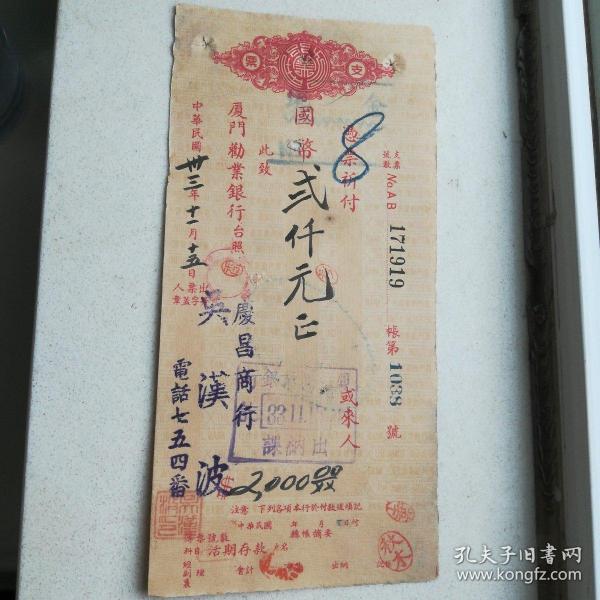 支票
支票
號數 No AB 171919
帳第 1038 號
憑票祈付
8
或來人
國幣 弍仟元正
此致
廈門勸業銀行台照
中華民國 卅三 年 十一 月 十五 日
出票人
簽字蓋章
慶昌商行
吳漢波
電話七五四番
33.11.
出納課
2,000
注意 下列各項本行於付款後填記
中華民國 年 月 日付
總帳摘要
活期存款 戶名
會計
出納
孔夫子旧书网
www.kongfz.com